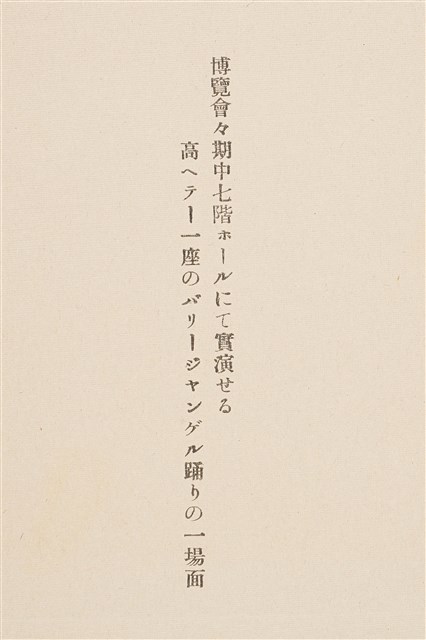 博覽會々期中七階ホールにて實演せる
高ヘテー一座のバリージャンゲル踊りの一場面